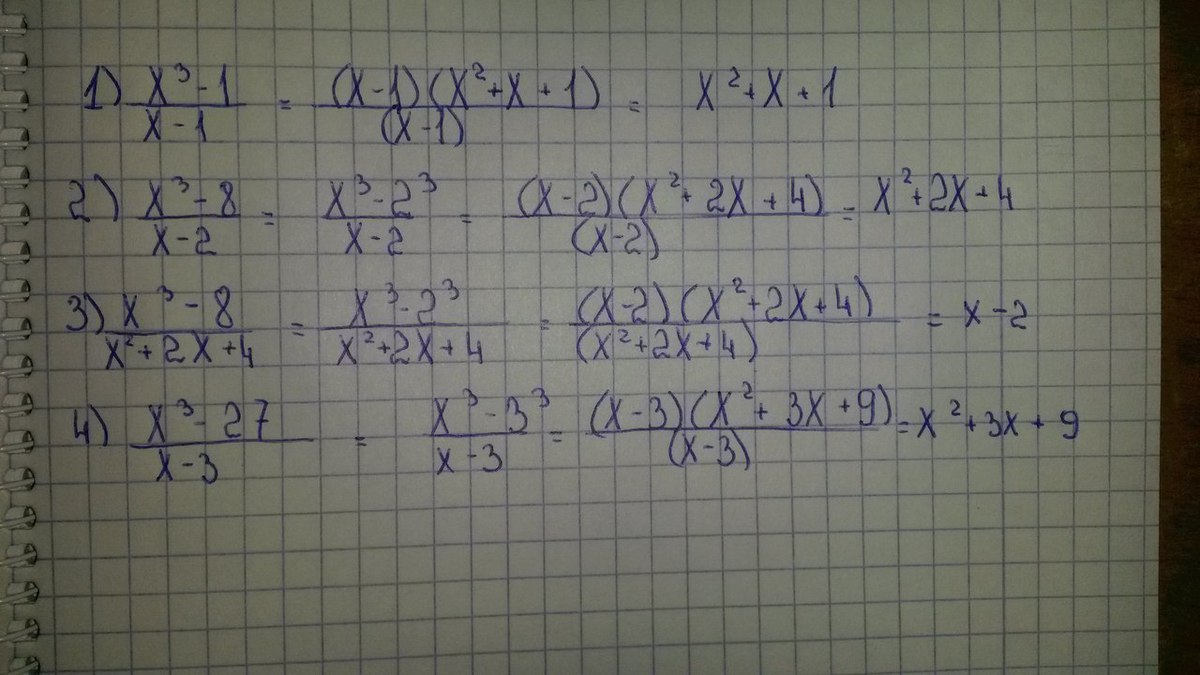 1) (x³-1)/(x-1) = ((x-1)(x²+x+1))/((x-1)) = x²+x+1
2) (x³-8)/(x-2) = (x³-2³)/(x-2) = ((x-2)(x²+2x+4))/((x-2)) = x²+2x+4
3) (x³-8)/(x²+2x+4) = (x³-2³)/(x²+2x+4) = ((x-2)(x²+2x+4))/((x²+2x+4)) = x-2
4) (x³-27)/(x-3) = (x³-3³)/(x-3) = ((x-3)(x²+3x+9))/((x-3)) = x²+3x+9